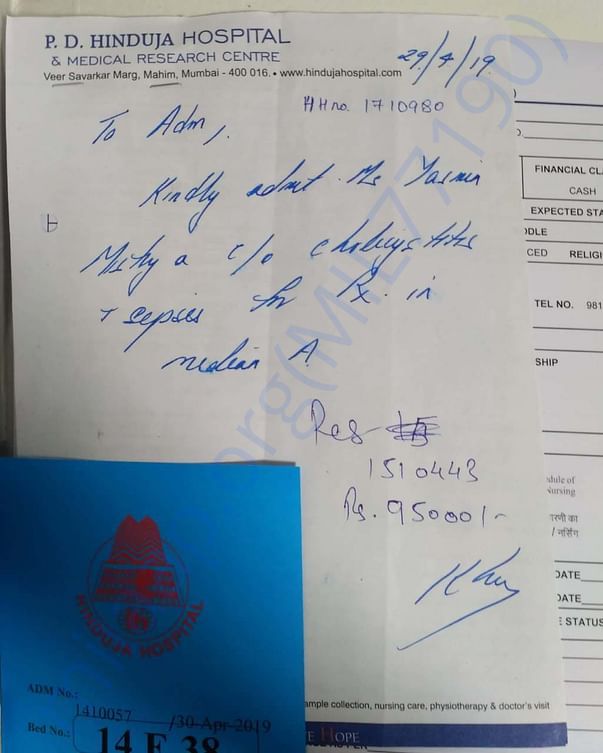 P. D. HINDUJA HOSPITAL
& MEDICAL RESEARCH CENTRE
Veer Savarkar Marg, Mahim, Mumbai - 400 016. • www.hindujahospital.com
29/4/19
HH no. 1710980
To Adm,
Kindly admit Ms Yasmin
Mistry a c/o
+ sepsis for Rx in
A
Res-
1510443
Rs. 95000/-
FINANCIAL CL
CASH
EXPECTED STA
DDLE
CED RELIGI
TEL NO. 981
SHIP
dule of
Nursing
रणी का
/ नर्सिंग
DATE
DATE
E STATUS
HINDUJA HOSPITAL
ADM No.:
1410057 /30-Apr-2019
Bed No.:
14 F 38
ample collection, nursing care, physiotherapy & doctor's visit
E HOPE
org(MIL77190)